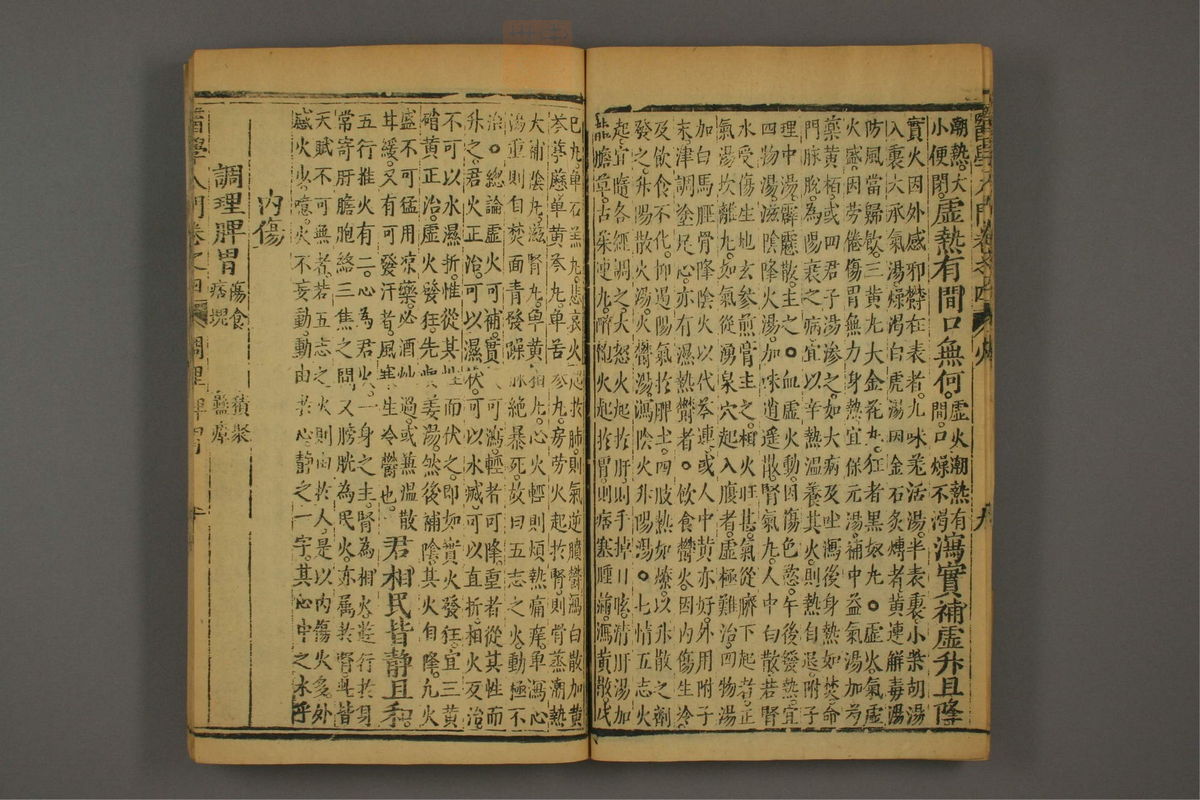 潮熱大
小便閉
虛熱有間口無何
虛火潮熱有
間口燥不渴
瀉實補虛升且降
實火因外感邪欝在表者九味羌活湯半表裏小柴胡湯
入裏大承氣湯燥渴白虎湯因金石炙煿者黃連解毒湯
防風當歸飲三黃丸大金花丸狂者黑奴丸○虛火氣虛
火盛因勞倦傷胃無力身熱宜保元湯補中益氣湯加芍
藥黃栢或四君子湯滲之如大病及吐瀉後身熱如焚命
門脉脫為陽衰之病宜以辛熱溫養其火則熱自退附子
理中湯霹靂散主之○血虛火動因傷色慾午後發熱宜
四物湯滋陰降火湯加味逍遙散腎氣丸人中白散若腎
水受傷生地玄參煎膏主之相火旺甚氣從臍下起者正
氣湯坎離丸如氣從湧泉穴起入腹者虛極難治四物湯
加白馬脛骨降陰火以代芩連或人中黃亦好外用附子
末津調塗足心亦有濕熱欝者○飲食欝火因內傷生冷
及飲食不化抑遏陽氣於脾土四肢熱如燎以升散之劑
發之升陽散火湯火欝湯瀉陰火升陽湯○七情五志火
起宜隨各經調之大怒火起於肝則手掉目眩清肝湯加
龍膽草古柴連丸醉飽火起於胃則痞塞腫滿瀉黃散戊
己丸單石羔丸悲哀火起於肺則氣逆膹欝瀉白散加黃
芩葶藶單黃參丸單苦參丸房勞火起於腎則骨蒸潮熱
大補陰丸滋腎丸單黃栢丸心火輕則煩熱痛痒單瀉心
湯重則自焚面青發躁脉絶暴死故曰五志之火動極不
治○總論虛火可補實火可瀉輕者可降重者從其性而
升之君火正治可以濕伏可以水滅可以直折相火反治
不可以水濕折惟從其性而伏之即如實火發狂宜三黃
硝黃正治虛火發狂先與姜湯然後補陰其火自降凡火
盛不可猛用凉藥必酒炒過或兼溫散
甘緩又有可發汗者風寒生冷欝也
君相民皆靜且和
五行推火有二心為君火一身之主腎為相火遊行於身
常寄肝膽胞絡三焦之間又膀胱為民火亦属於腎與皆
天賦不可無者若五志之火則由於人是以内傷火多外
感火少噫火不妄動動由於心靜之一字其心中之水乎
内傷
調理脾胃
傷食 積聚
痞塊 蠱瘴
醫學入門卷之四 調理脾胃 十